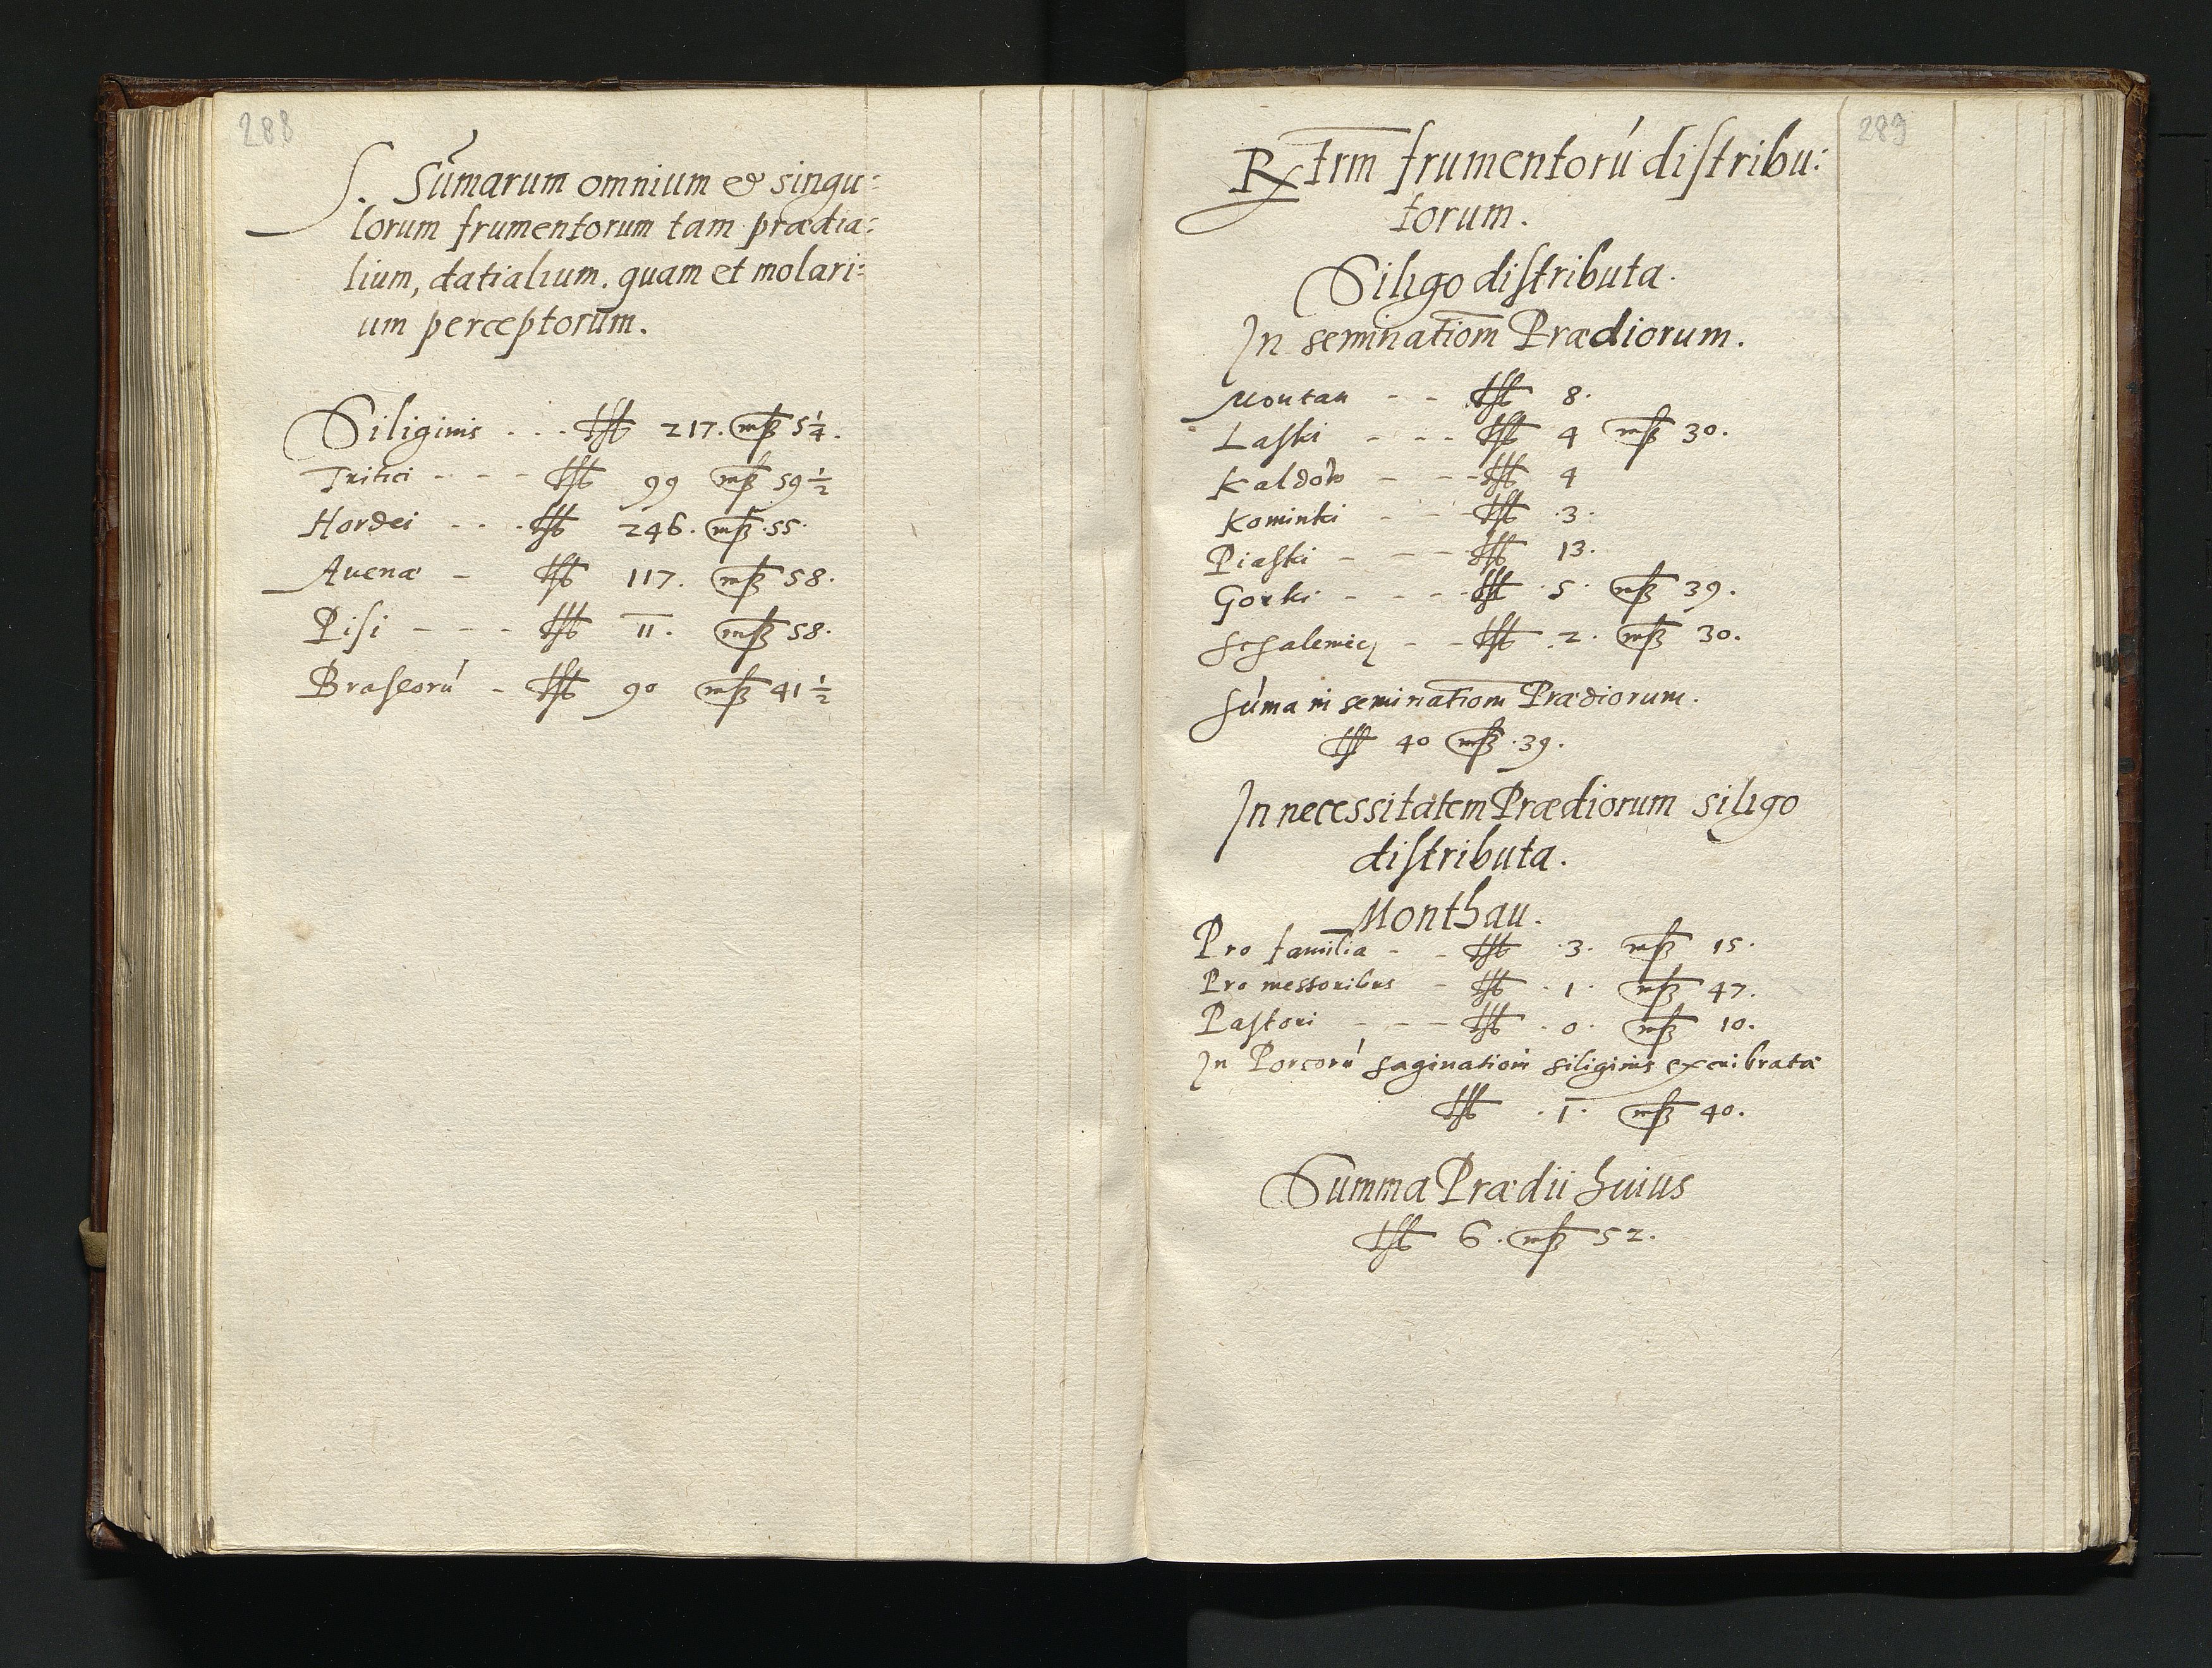 288
S. Sum̄arum omnium et singu:
lorum frumentorum tam prædia:
lium, datialium. quam et molari:
um perceptorum.
Siliginis . . . lſt 217. mſz 5¼.
Tritici - - - - lſt 99 mſz 59½
Hordei - - . lſt 246. mſz 55.
Auenæ - lſt 117. mſz 58.
Piſi - - - lſt 11. mſz 58.
Braſeorú - lſt 90 mſz 41½
289
Rxtrm frumentorú diſtribu:
torum.
Siligo diſtributa.
In seminatiom Prædiorum.
Montau - - lſt 8.
Laſki - - - lſt 4 mſz 30.
Kaldow - - - lſt 4
Kominki - - - lſt .3.
Piaſki - - - - lſt 13.
Gorki - - - - lſt .5. mſz 39.
- - lſt .2. mſz 30.
Súma in seminatiom Prædiorum.
lſt 40 mſz .39.
In necessitatem Prædiorum siligo
diſtributa.
Monthau.
Pro familia - - lſt .3. mſz 15.
Pro messoribus - lſt .1. mſz 47.
Paſtori - - - lſt .0. mſz 10.
In Porcorú saginatiom siliginis excribratæ
lſt .1. mſz 40.
Summa Prædii huius
lſt 6. mſz 52.